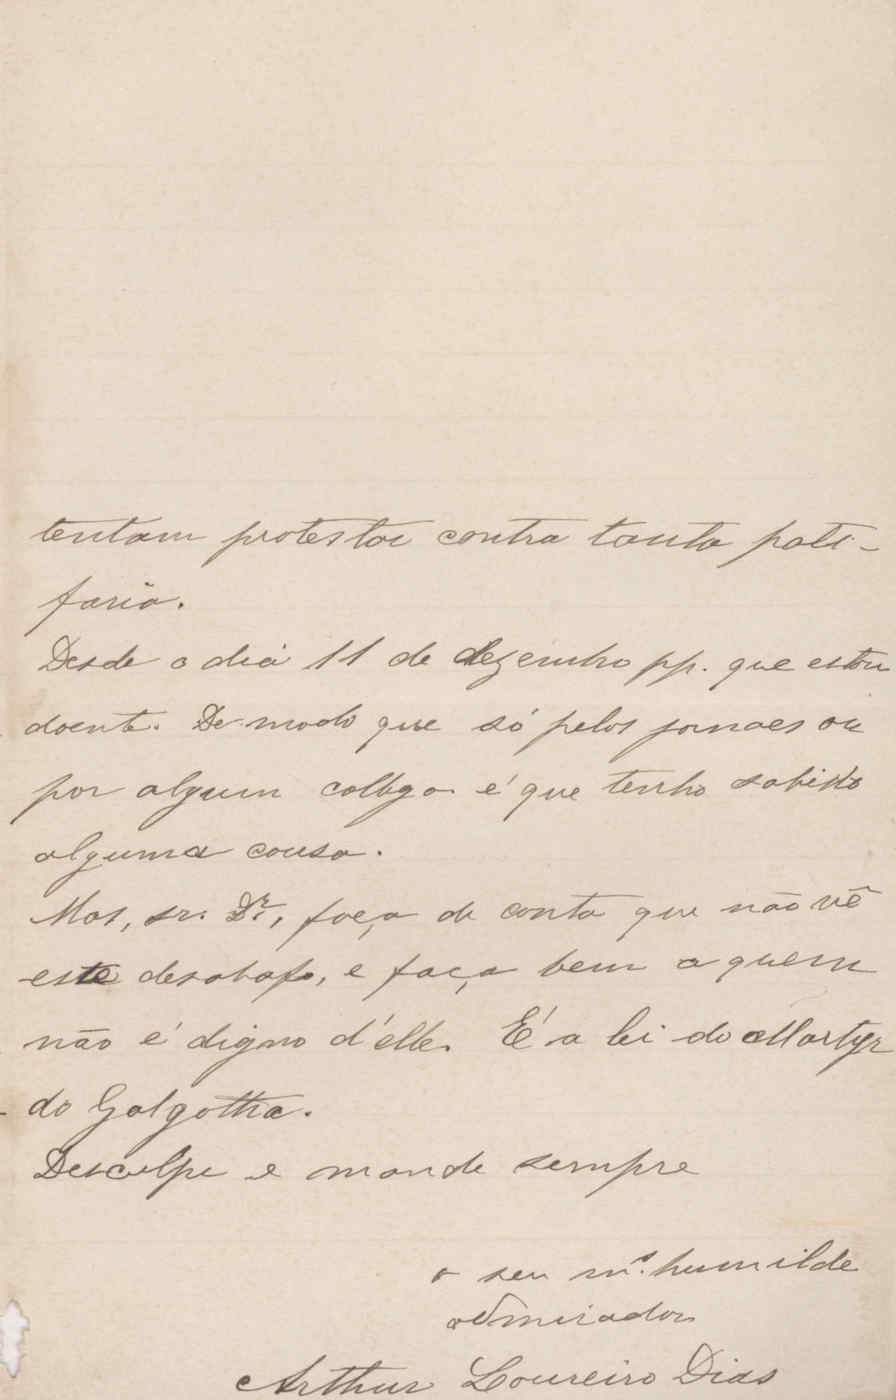 tentam protestar contra tanta pati-
faria.
Desde o dia 11 de dezembro pp. que estou
doente. De modo que só pelos jornaes ou
por algum collega é que tenho sabido
alguma cousa.
Mas, sr. Dr., faça de conta que não vê
este desabafo, e faça bem a quem
não é digno d'elle. É a lei do Martyr
do Golgotha.
Desculpe e mande sempre
o seu mº. humilde
admirador
Arthur Loureiro Dias